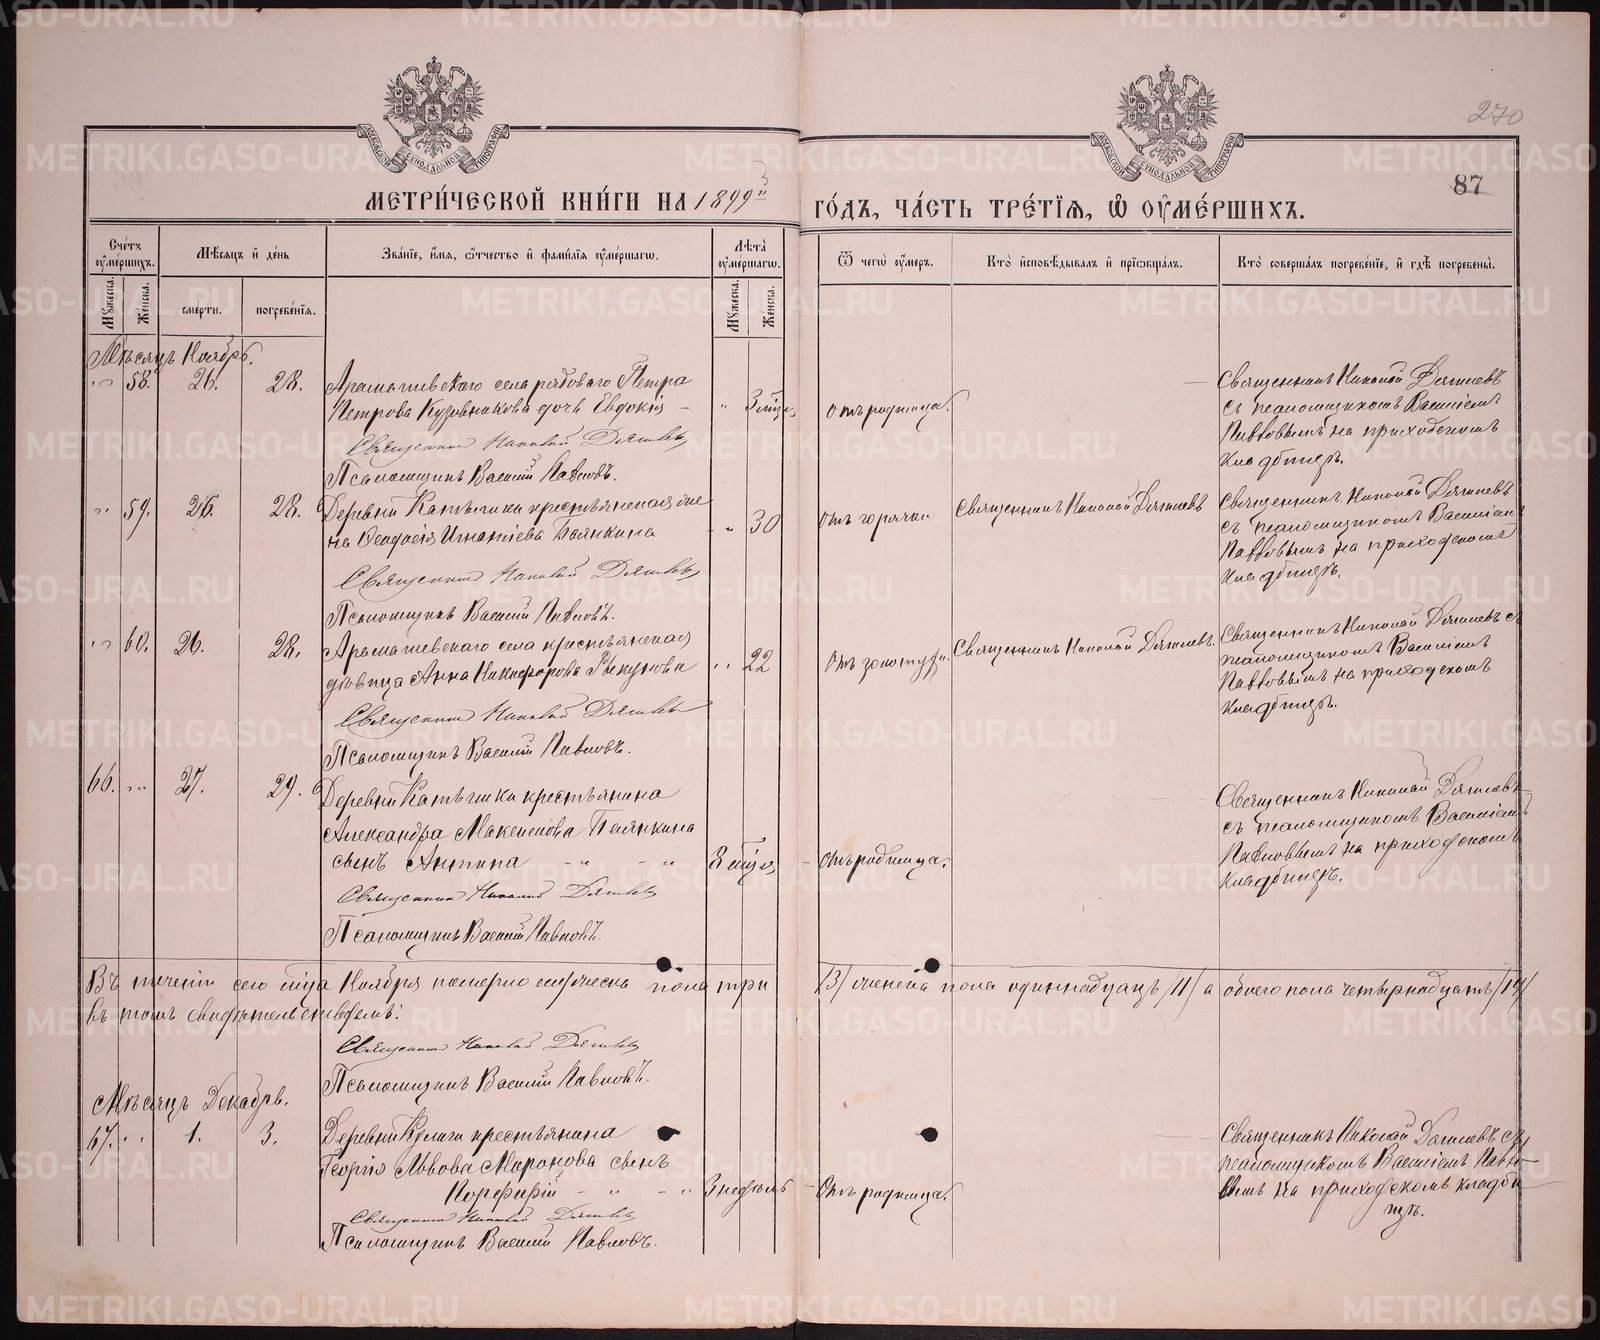 270
87
МЕТРИЧЕСКОЙ КНИГИ НА 1899й ГОДЪ, ЧАСТЬ ТРЕТІЯ, Ѡ ОУМЕРШИХЪ.
Счетъ оумершихъ.
Мѣсяцъ и день
Званіе, имя, ѿчество и фамилія оумершагѡ.
Лѣта оумершагѡ.
Ѿ чегѡ оумеръ.
Кто исповѣдывалъ и пріѡбщалъ.
Кто совершалъ погребеніе, и гдѣ погребены.
Мужеска.
Женска.
смерти.
погребенія.
Мужеска.
Женска.
Мѣсяцъ Ноябрь.
58. 26. 28. Арамашевскаго села рядоваго Петра
Петрова Кузовникова дочь Евдокія 3 мѣс. отъ родимца.
Священникъ Николай
Псаломщикъ Василій Павловъ.
Священникъ Николай
съ псаломщикомъ Василіемъ
Павловымъ на приходскомъ
кладбищѣ.
59. 26. 28. Деревни Катышка крестьянская же
на Ѳеодосія Игнатіева 30 отъ горячки Священникъ Николай
Священникъ Николай
Псаломщикъ Василій Павловъ.
Священникъ Николай
съ псаломщикомъ Василіем
Павловымъ на приходскомъ
кладбищѣ.
60. 26. 28. Арамашевскаго села крестьянская
дѣвица Анна Никифорова Рѣкунова 22 отъ золотухи. Священникъ Николай
Священникъ Николай
Псаломщикъ Василій Павловъ.
Священникъ Николай съ
псаломщикомъ Василіемъ
Павловымъ на приходскомъ
кладбищѣ.
66. 27. 29. Деревни Катышка крестьянина
Александра Максимова
сынъ Антипа 8 мѣсяц отъ родимца.
Священникъ Николай
Псаломщикъ Василій Павловъ.
Священникъ Николай
съ псаломщикомъ Василіемъ
Павловымъ на приходскомъ
кладбищѣ.
Въ теченіи сего мѣсяца Ноября померло мужеска пола три /3/ женска пола одиннадцать /11/ а обоего пола четырнадцать /14/
въ томъ свидѣтельствуемъ:
Священникъ Николай
Псаломщикъ Василій Павловъ.
Мѣсяцъ Декабрь.
67. 1. 3. Деревни Кулиги крестьянина
Георгія Львова Миронова сынъ
Порфирій 3 недѣль Отъ родимца.
Священникъ Николай
Псаломщикъ Василій Павловъ.
Священникъ Николай съ
псаломщикомъ Василіемъ Павло-
вымъ на приходскомъ кладби
щѣ.
METRIKI.GASO-URAL.RU